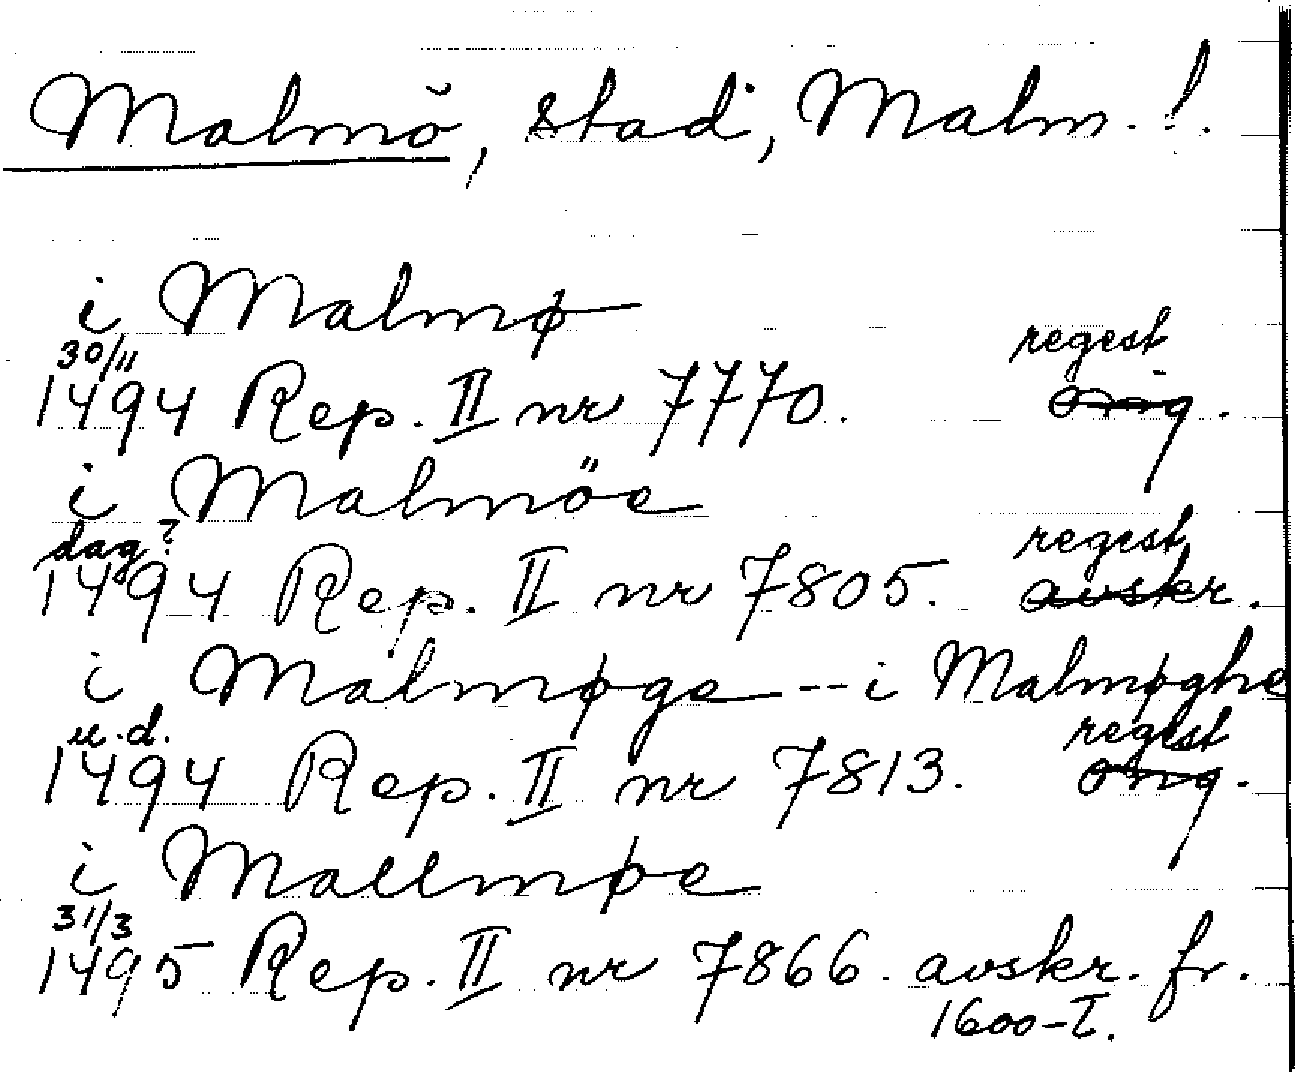 Malmö, stad, Malm. l.
i Malmø
30/11 regest
1494 Rep. II nr 7770. orig.
i Malmöe
dag? regest
1494 Rep. II nr 7805. avskr.
i Malmøge -- i Malmøghe
u.d. regest
1494 Rep. II nr 7813. orig.
i Mallmøe
31/3
1495 Rep. II nr 7866. avskr. fr.
1600-T.